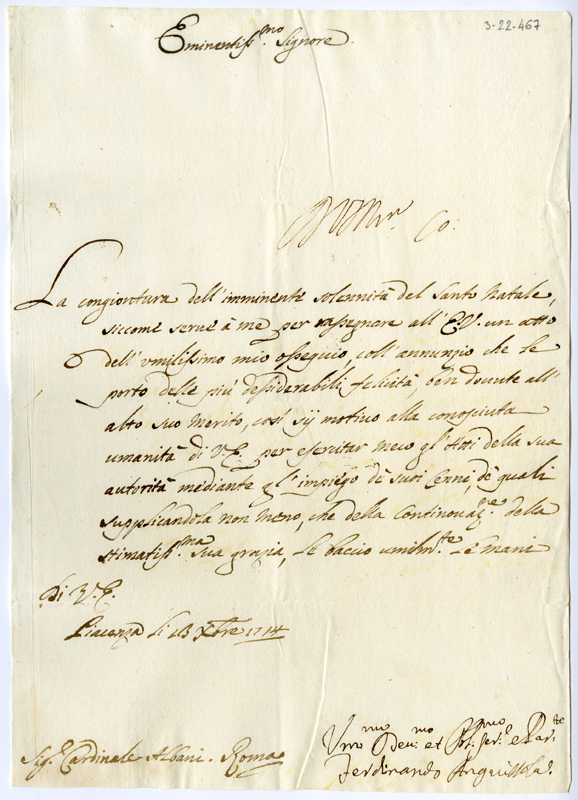 3-22-467
Eminentiss.mo Signore.
Co:
La congiontura dell'imminente solennità del Santo Natale,
siccome serue à me per rassegnare all'E.V. un atto
dell'vmilissimo mio ossequio, coll'annuncio che le
porto delle più dessiderabili felicità, ben douute all'
alto suo merito, così sij motiuo alla conosciuta
umanità di V.E. per esercitar meco gl'Atti della sua
autorità mediante gl'impiego dè suoi Cenni, dè quali
supplicandola non meno, che della Continouaz.e della
stimatiss.ma sua grazia, le baccio umilm.te le mani
Di V.E.
Piacenza li 13 Xbre 1714
Sig.r Cardinale Albani. Roma
Vmo Deu.mo et Obl.mo Ser.e e Par.te
Ferdinando Anguissola.